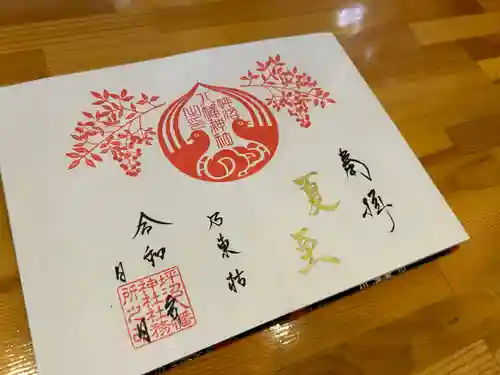 奉拝
夏至
乃東枯
令和 年 月
日
坪沼八幡
神社社務
所之印
坪沼
八幡神社
之印